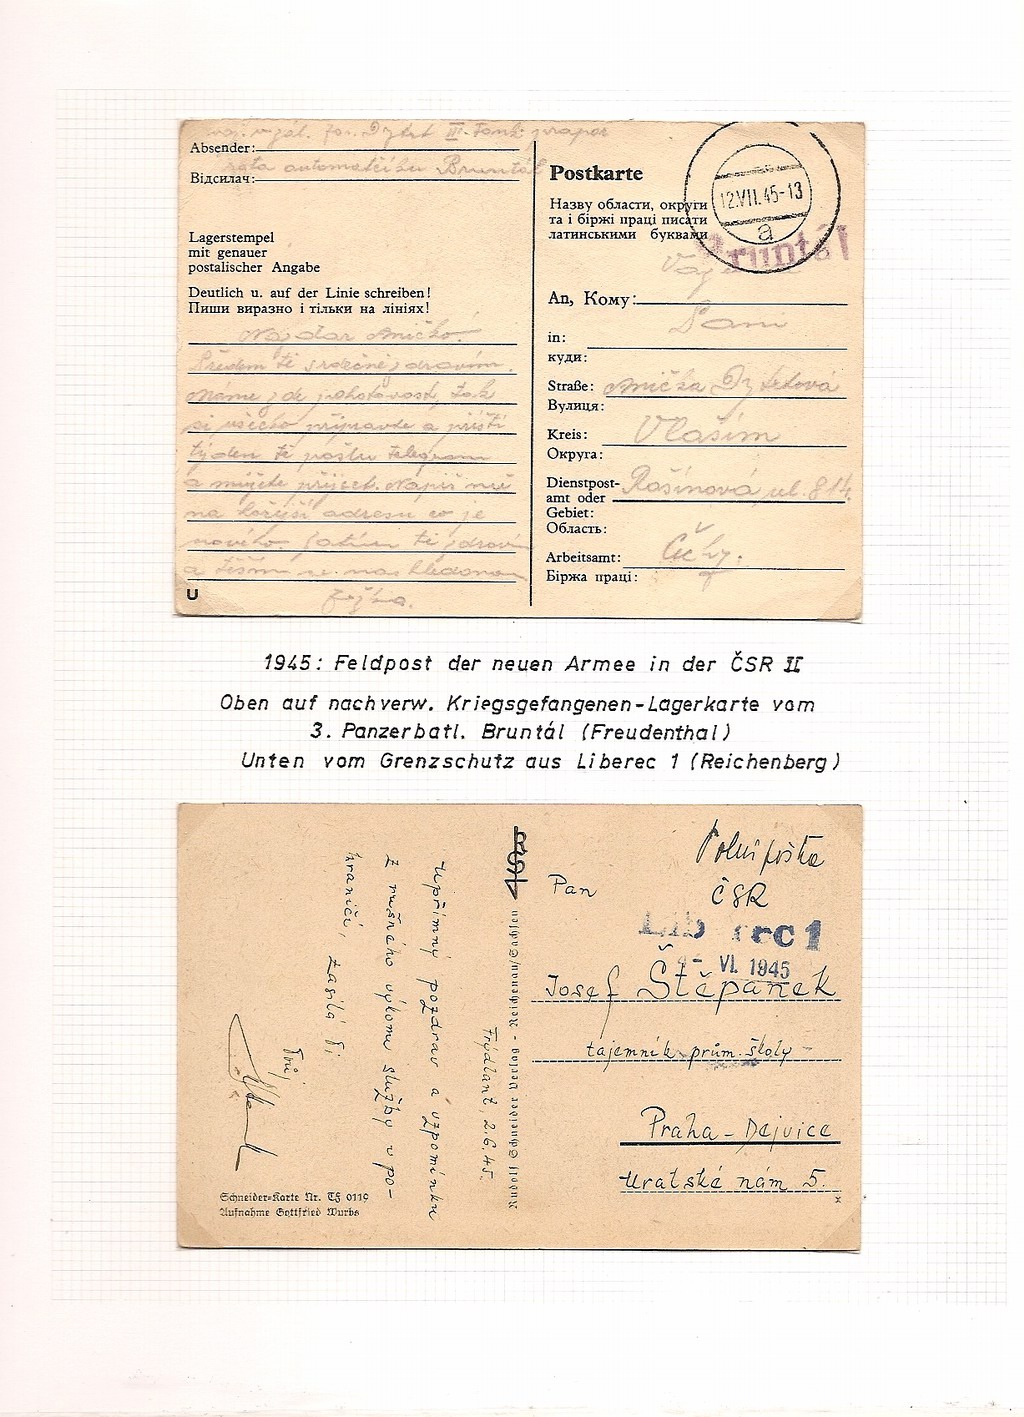 Absender:
rota automatčíku Bruntál
Відсилач:
Lagerstempel
mit genauer
postalischer Angabe
Deutlich u. auf der Linie schreiben!
Пиши виразно і тільки на лініях!
Nazdar Aničko.
Předem tě srdečně zdravím.
Máme zde pohotovost, tak
si všecko připravte a příští
týden ti pošlu telegram
a můžete přijet. Napiš mě
na hořejší adresu co je
nového. Zatím tě zdraví
a těším se na shledanou
U
Postkarte
12.VII.45-13
a
Назву области, округи
та і біржі праці писати
латинськими буквами
Bruntál
An, Кому:
Paní
in:
куди:
Straße: Anička
Вулиця:
Kreis: Vlašim
Округа:
Dienstpost-
amt oder Rašínová ul. 814.
Gebiet:
Область:
Arbeitsamt: Čechy.
Біржа праці:
1945: Feldpost der neuen Armee in der ČSR II
Oben auf nachverw. Kriegsgefangenen-Lagerkarte vom
3. Panzerbatl. Bruntál (Freudenthal)
Unten vom Grenzschutz aus Liberec 1 (Reichenberg)
Polní pošta
ČSR
Pan
Lib rec 1
- VI. 1945
Josef Štěpánek
tajemník prům. školy
Praha - Dejvice
Uratské nám 5.
x
RSV
Rudolf Schneider Verlag - Reichenau/Sachsen
Frýdlant, 2.6.45.
Upřímný pozdrav a vzpomínku
z rušného výkonu služby v po-
hraničí, zasílá Ti
Tvůj
Schneider-Karte Nr. TH 0119
Aufnahme Gottfried Wurbs